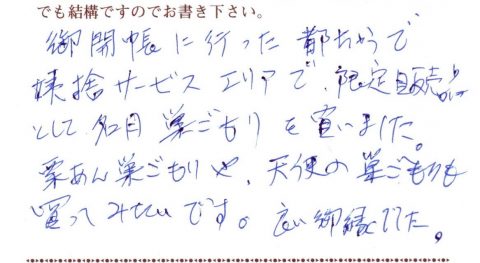 でも結構ですのでお書き下さい。
御開帳に行った都ちゃうで
姨捨サービスエリアで、限定販売
として名月巣ごもりを買いました。
栗あん巣ごもりや、天使の巣ごもりも
買ってみたいです。良い御縁でした。